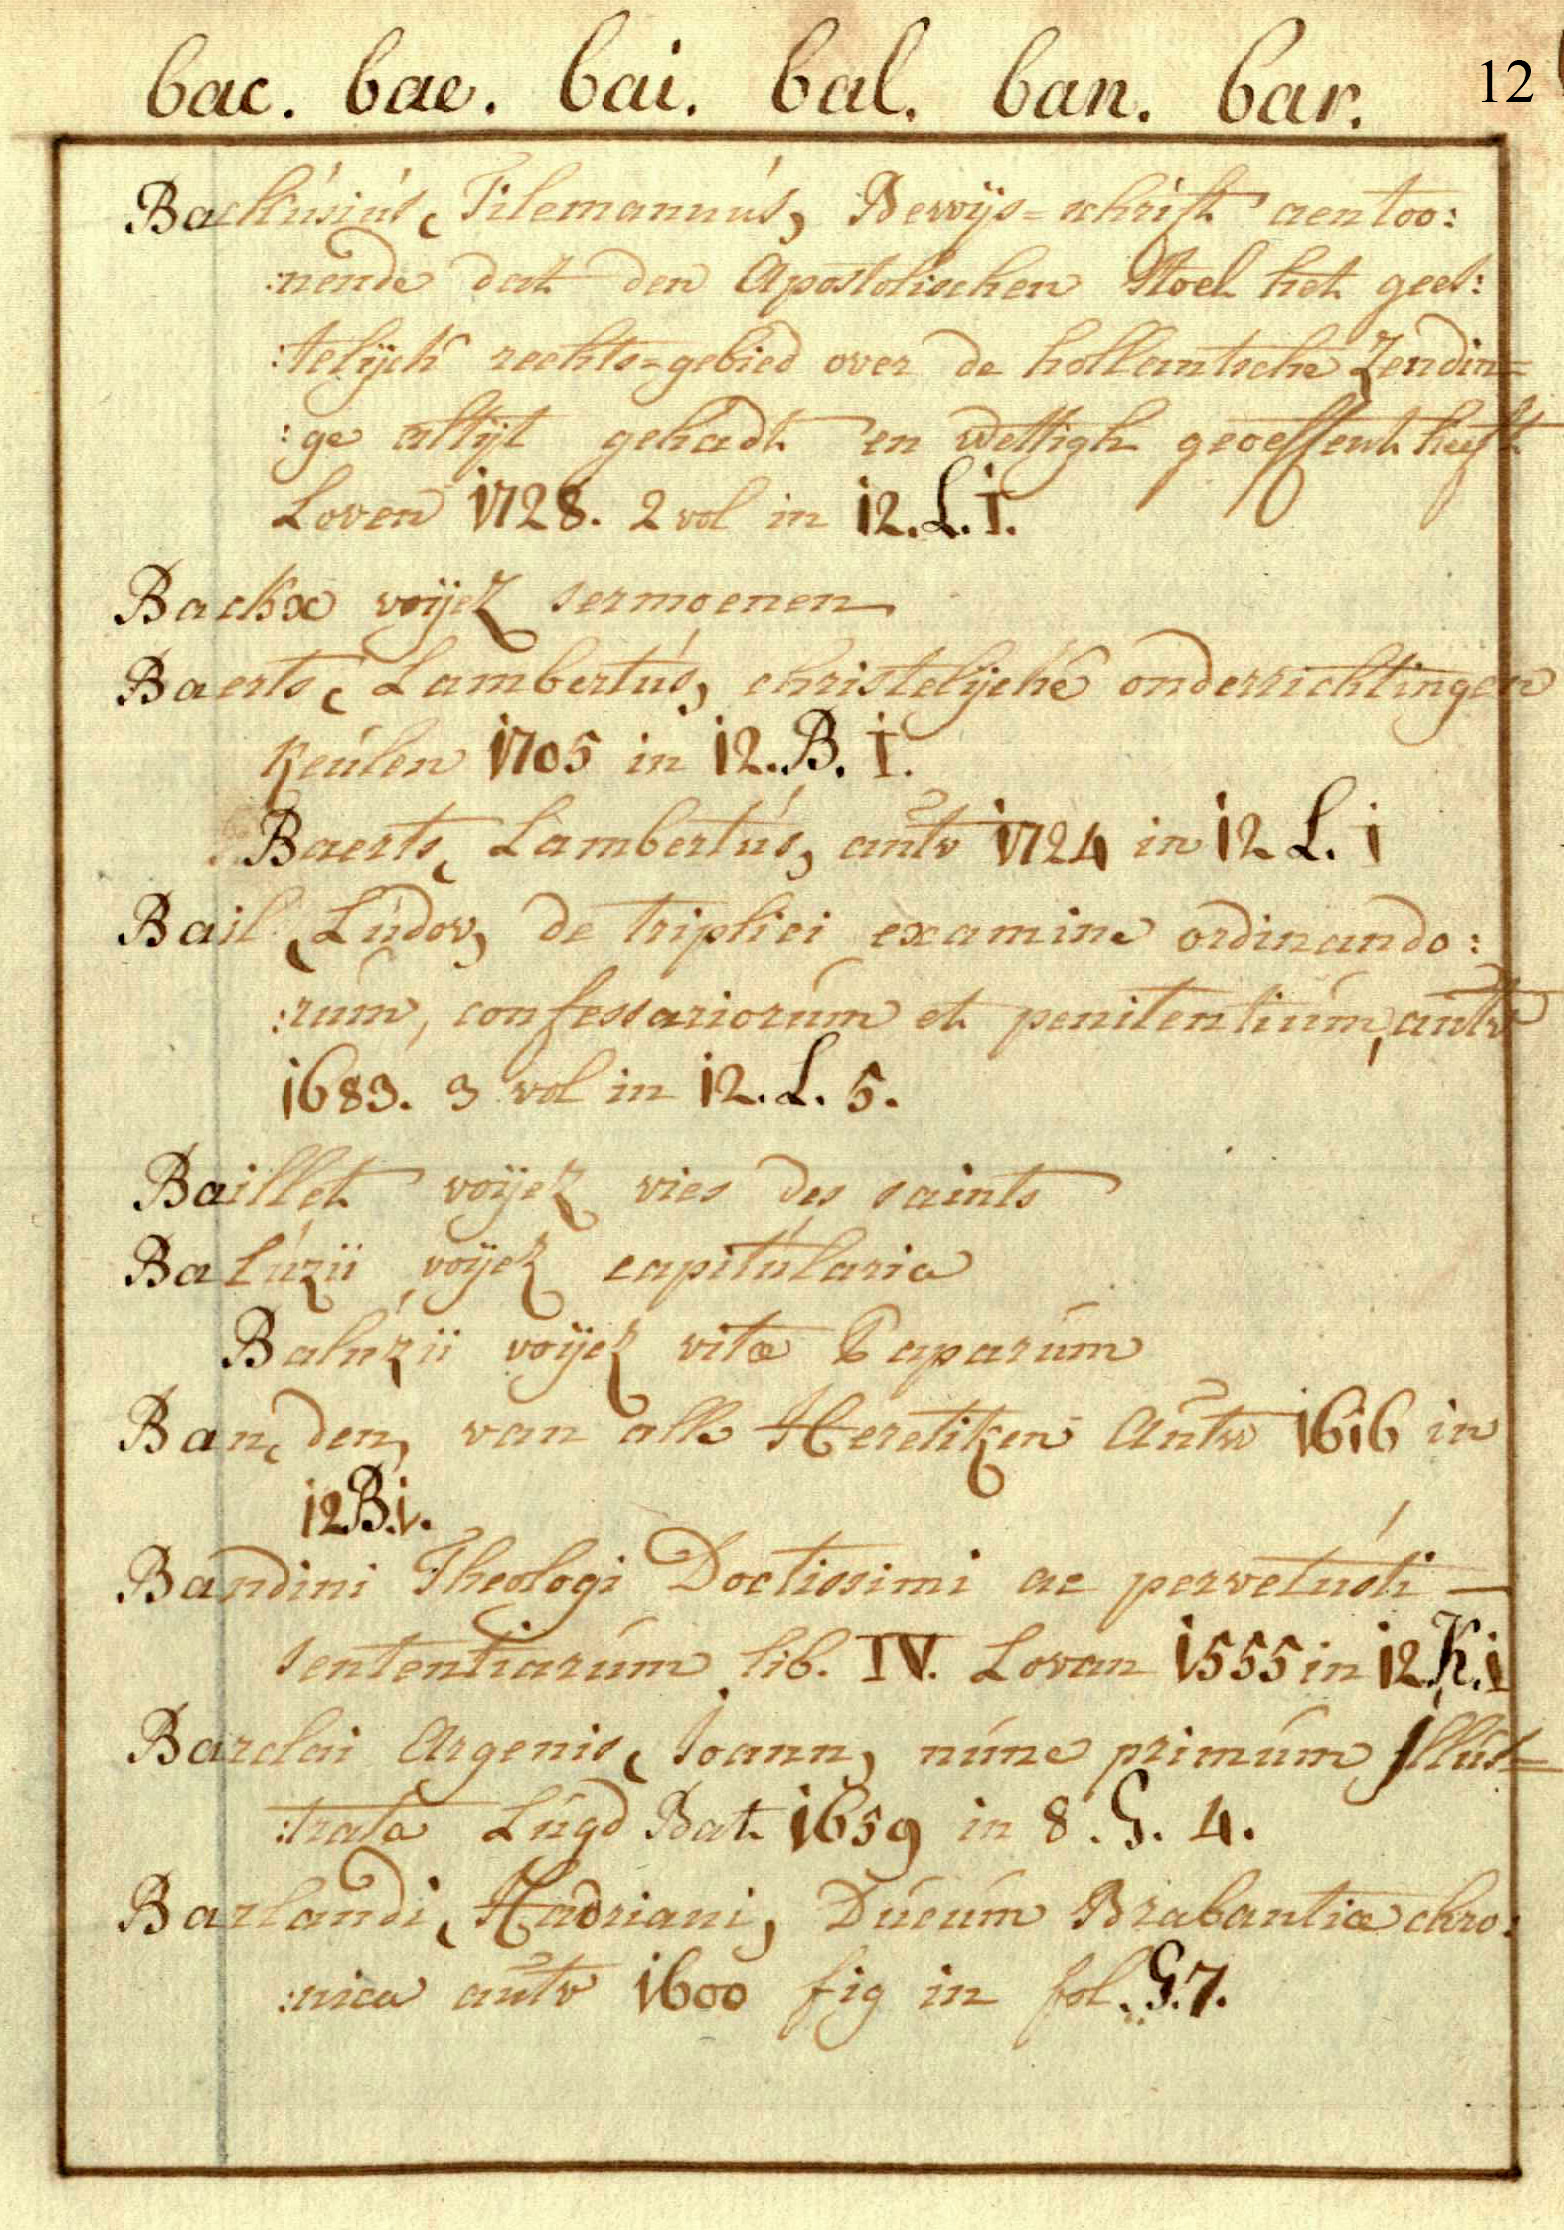 bac. bae. bai. bal. ban. bar. 12
Backhusius, Tilemannus, Bewijs=schrift aentoo:
:nende dat den Apostolischen Stoel het gees:
:telijck rechts=gebied over de hollantsche Zendin=
:ge altijt gehadt en wettigh geoeffent heeft
Loven 1728. 2 vol in 12. L. I.
Backx voÿez sermoenen
Baerts, Lambertus, christelijcke onderrichtingen
Keulen 1705 in 12. B. I.
Baerts, Lambertus, antv 1724 in 12 L. i
Bail, Ludov, de triplici examine ordinando:
:rum, confessariorum et penitentium, antv
1683. 3 vol in 12. L. 5.
Baillet voÿez vies des saints
Baluzii voÿez capitularia
Baluzii voÿez vitæ Paparum
Ban, den, van alle Heretiken Antv 1616 in
12 B. i.
Bandini Theologi Doctissimi ac pervetusti
sententiarum lib. IV. Lovan 1555 in 12. K. i
Barclai Argenis, Joann, nunc primum Illus=
:trata Lugd Bat 1659 in 8. G. 4.
Barlandi, Hadriani, Ducum Brabantiæ chro:
:nica antv 1600 fig in fol. G. 7.